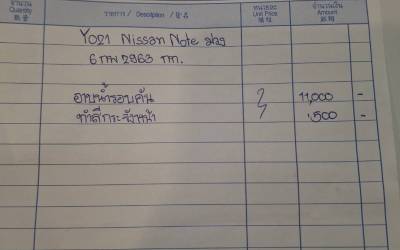 จำนวน รายการ / Description / 项目 หน่วยละ จำนวนเงิน
Quantity Unit Price Amount
数量 单价 金额
Nissan Note
6 กพ 2963 กท.
อาบน้ำรอบคัน 11,000 -
ทำสีกระจังหน้า 1,500 -